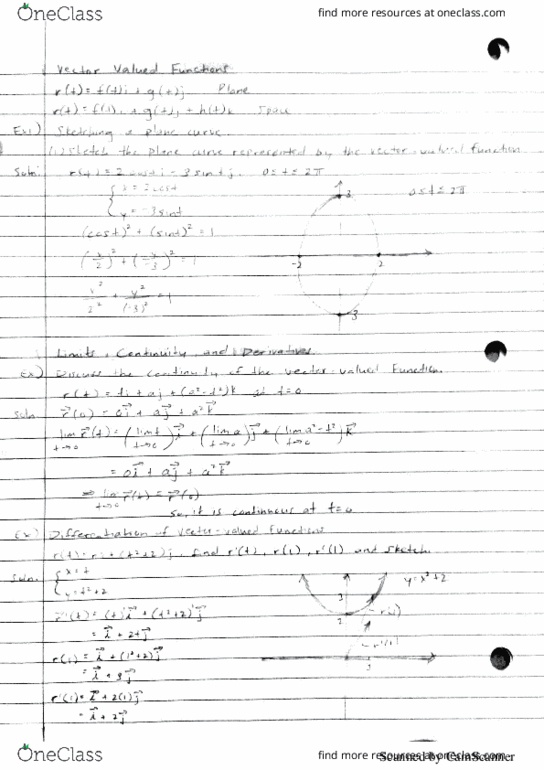 OneClass
find more resources at oneclass.com
Vector Valued Functions
r(t) = f(t)i + g(t)j Plane
r(t) = f(t)i + g(t)j + h(t)k Space
Ex1) Sketching a plane curve.
(1) Sketch the plane curve represented by the vector-valued function
Soln: r(t) = 2costi - 3sintj, 0≤t≤2π
{x = 2cost
{y = -3sint
3
0≤t≤2π
(cost)² + (sint)² = 1
(x/2)² + (y/-3)² = 1
-2 2
x²/2² + y²/(-3)² = 1
3
Limits, Continuity, and Derivatives
Ex) Discuss the continuity of the vector-valued function.
r(t) = ti + aj + (a²-t²)k at t=0
Soln r⃗(0) = 0i⃗ + aj⃗ + a²k⃗
lim t→0 r⃗(t) = (lim t→0 t)i⃗ + (lim t→0 a)j⃗ + (lim t→0 a²-t²)k⃗
= 0i⃗ + aj⃗ + a²k⃗
⇒ lim t→0 r⃗(t) = r⃗(0)
So, it is continuous at t=0
Ex) Differentiation of vector-valued functions
r(t) = ti + (t²+2)j, find r'(t), r(1), r'(1) and sketch.
Soln. {x=t
{y=t²+2
y=x²+2
r'(t) = (t)'i⃗ + (t²+2)'j⃗
3
2
r(1)
= i⃗ + 2tj⃗
r(1) = i⃗ + (1²+2)j⃗
r'(1)
= i⃗ + 3j⃗
r'(1) = i⃗ + 2(1)j⃗
= i⃗ + 2j⃗
OneClass
find more resources at oneclass.com
Scanned by CamScanner